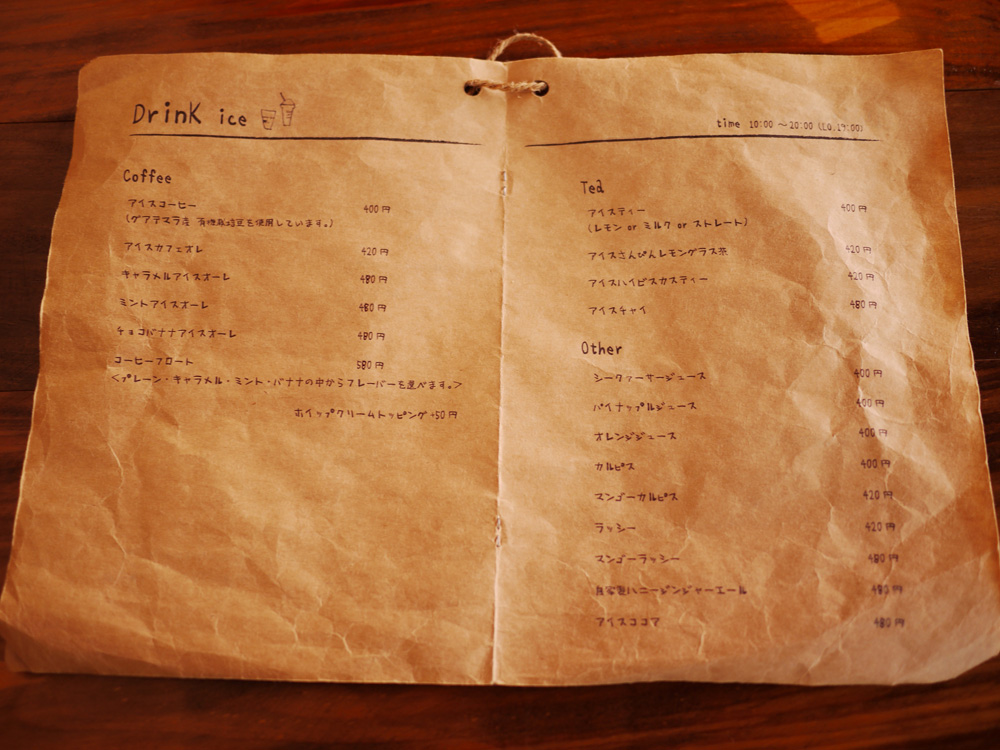 Drink ice
Coffee
アイスコーヒー 400円
(グアテマラ産 有機栽培豆を使用しています。)
アイスカフェオレ 420円
キャラメルアイスオーレ 480円
ミントアイスオーレ 480円
チョコバナナアイスオーレ 480円
コーヒーフロート 580円
<プレーン・キャラメル・ミント・バナナの中からフレーバーを選べます。>
ホイップクリームトッピング+50円
time 10:00 ～20:00 (LO.19:00)
Tea
アイスティー 400円
(レモン or ミルク or ストレート)
アイスさんぴんレモングラス茶 420円
アイスハイビスカスティー 420円
アイスチャイ 480円
Other
シークァーサージュース 400円
パイナップルジュース 400円
オレンジジュース 400円
カルピス 400円
マンゴーカルピス 420円
ラッシー 420円
マンゴーラッシー 480円
自家製ハニージンジャーエール 480円
アイスココア 480円